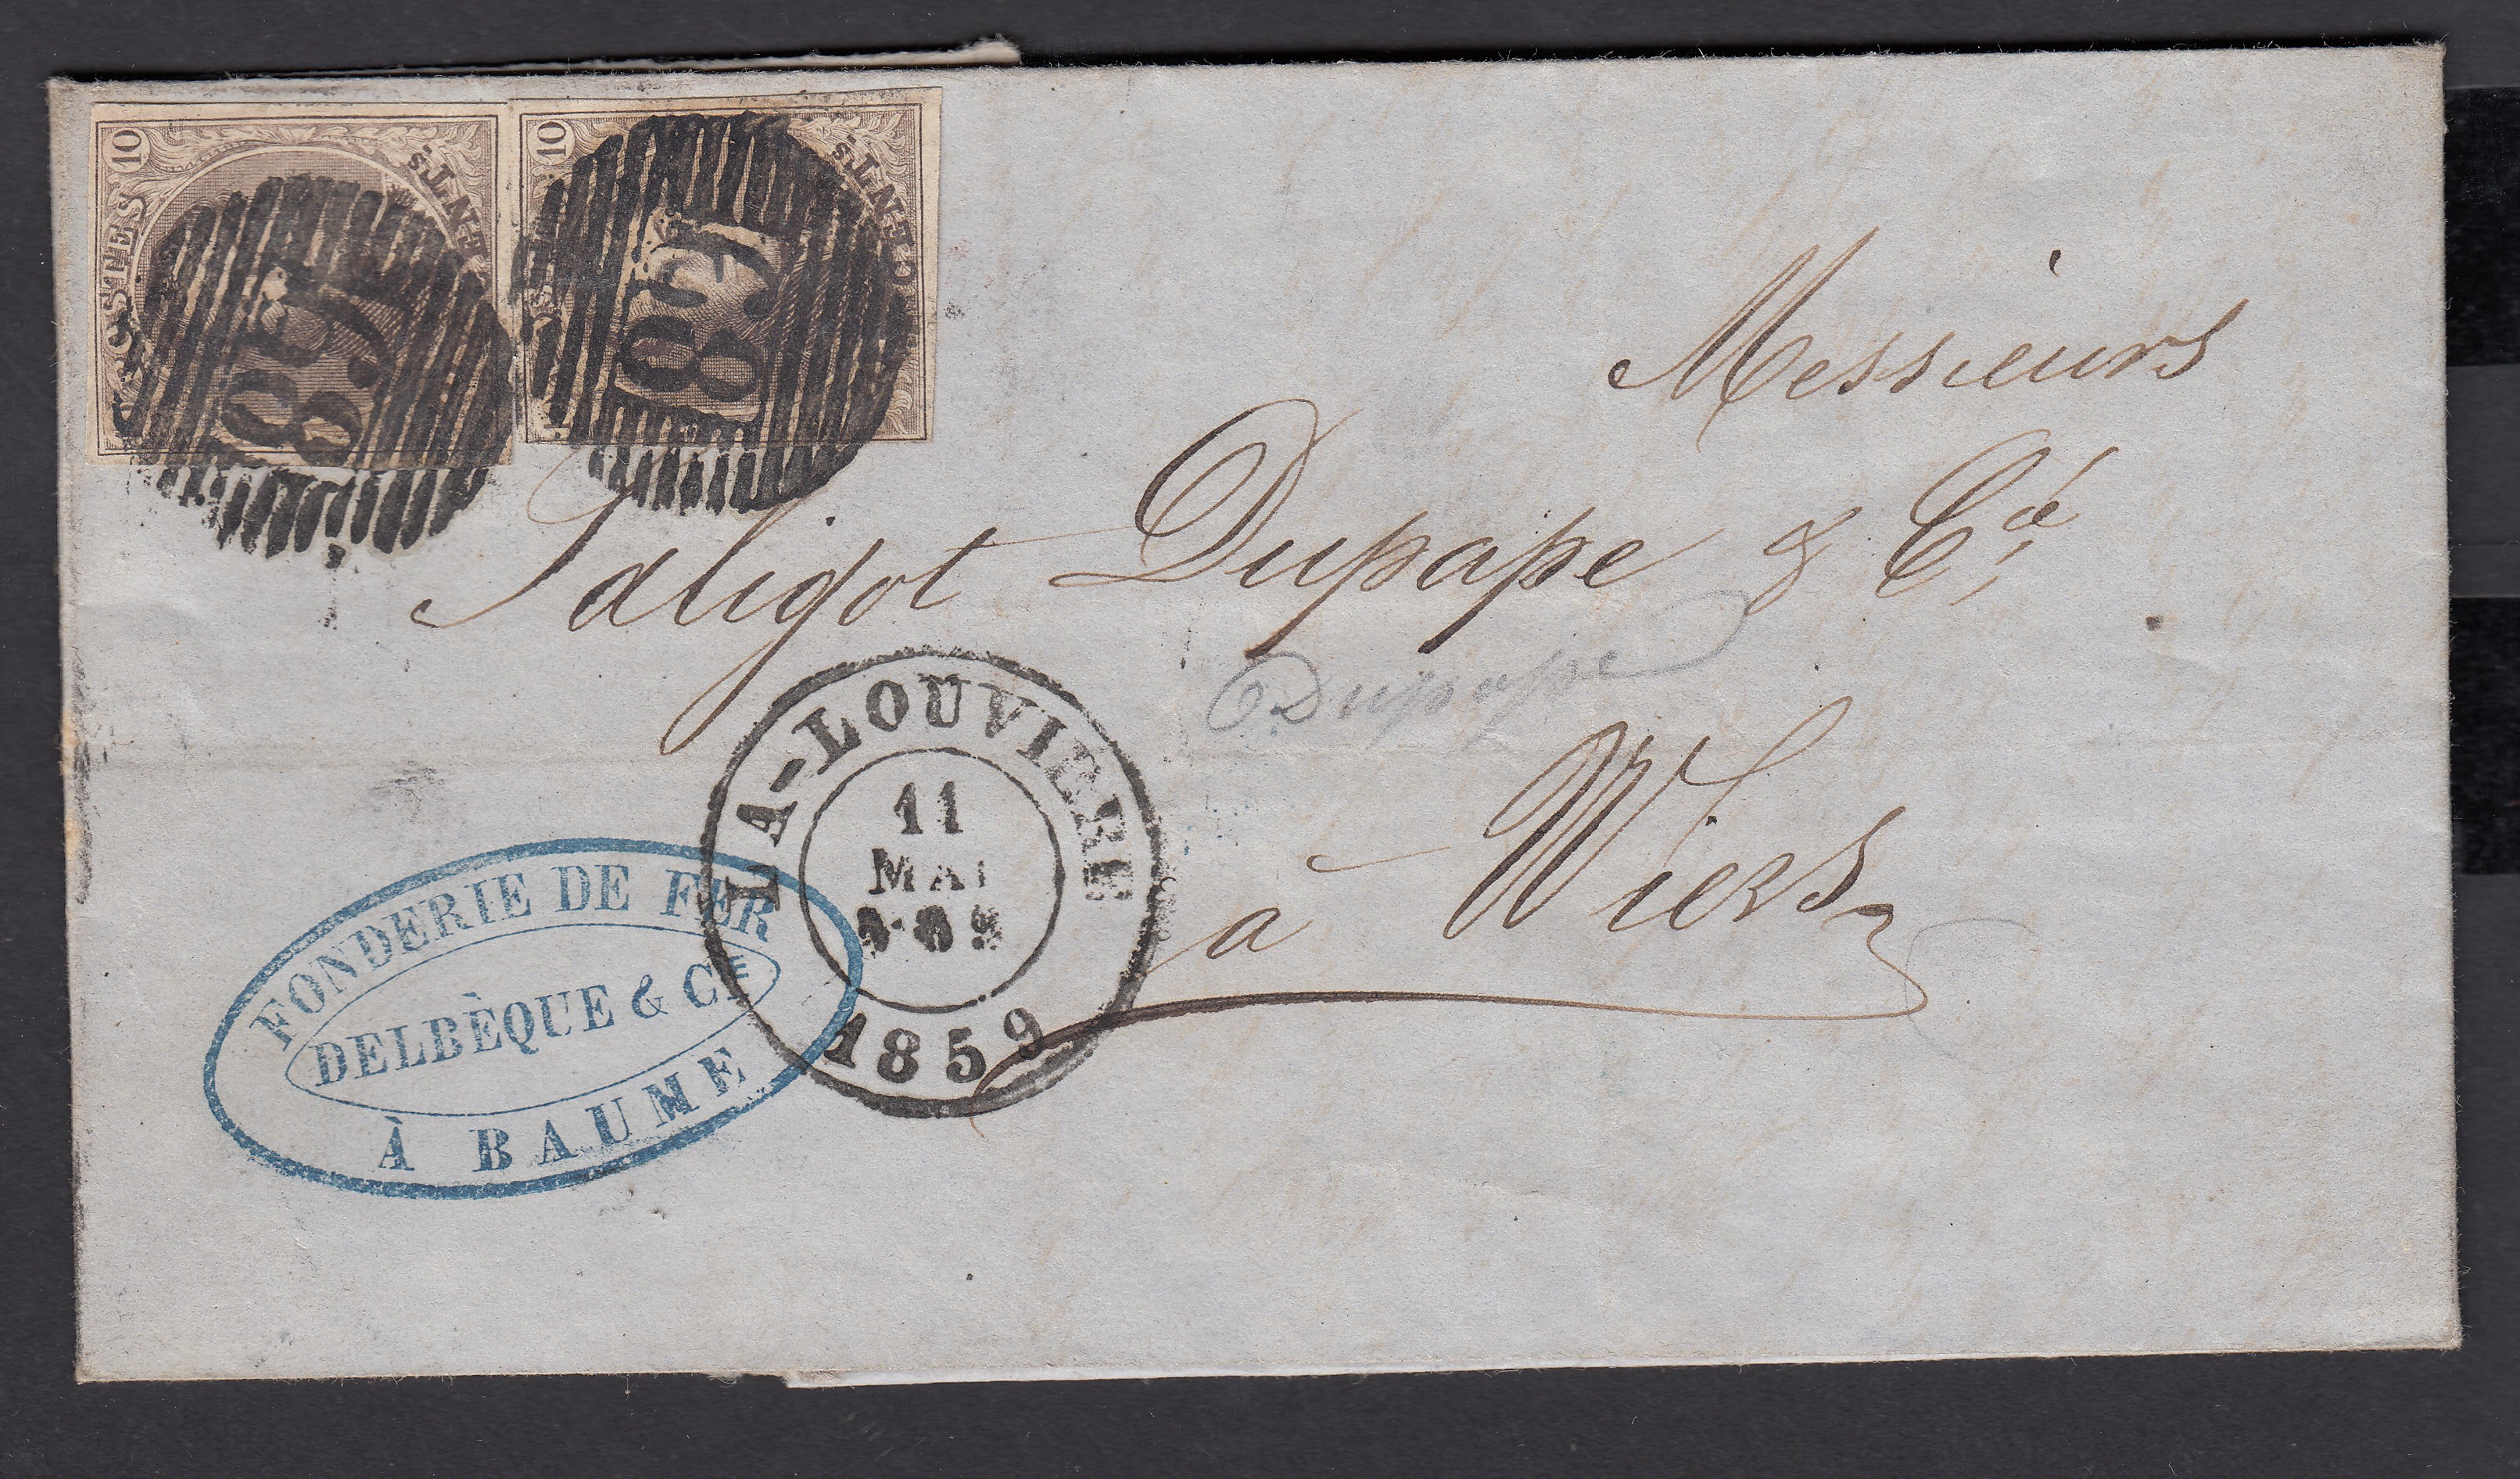 10 POSTES CENTs.
10 CENTs.
Messieurs
Saligot Dupape & Cie
Dupape
à Wiers
LA-LOUVIERE
11
MAI
1859
FONDERIE DE FER
DELBÈQUE & CIE
À BAUME